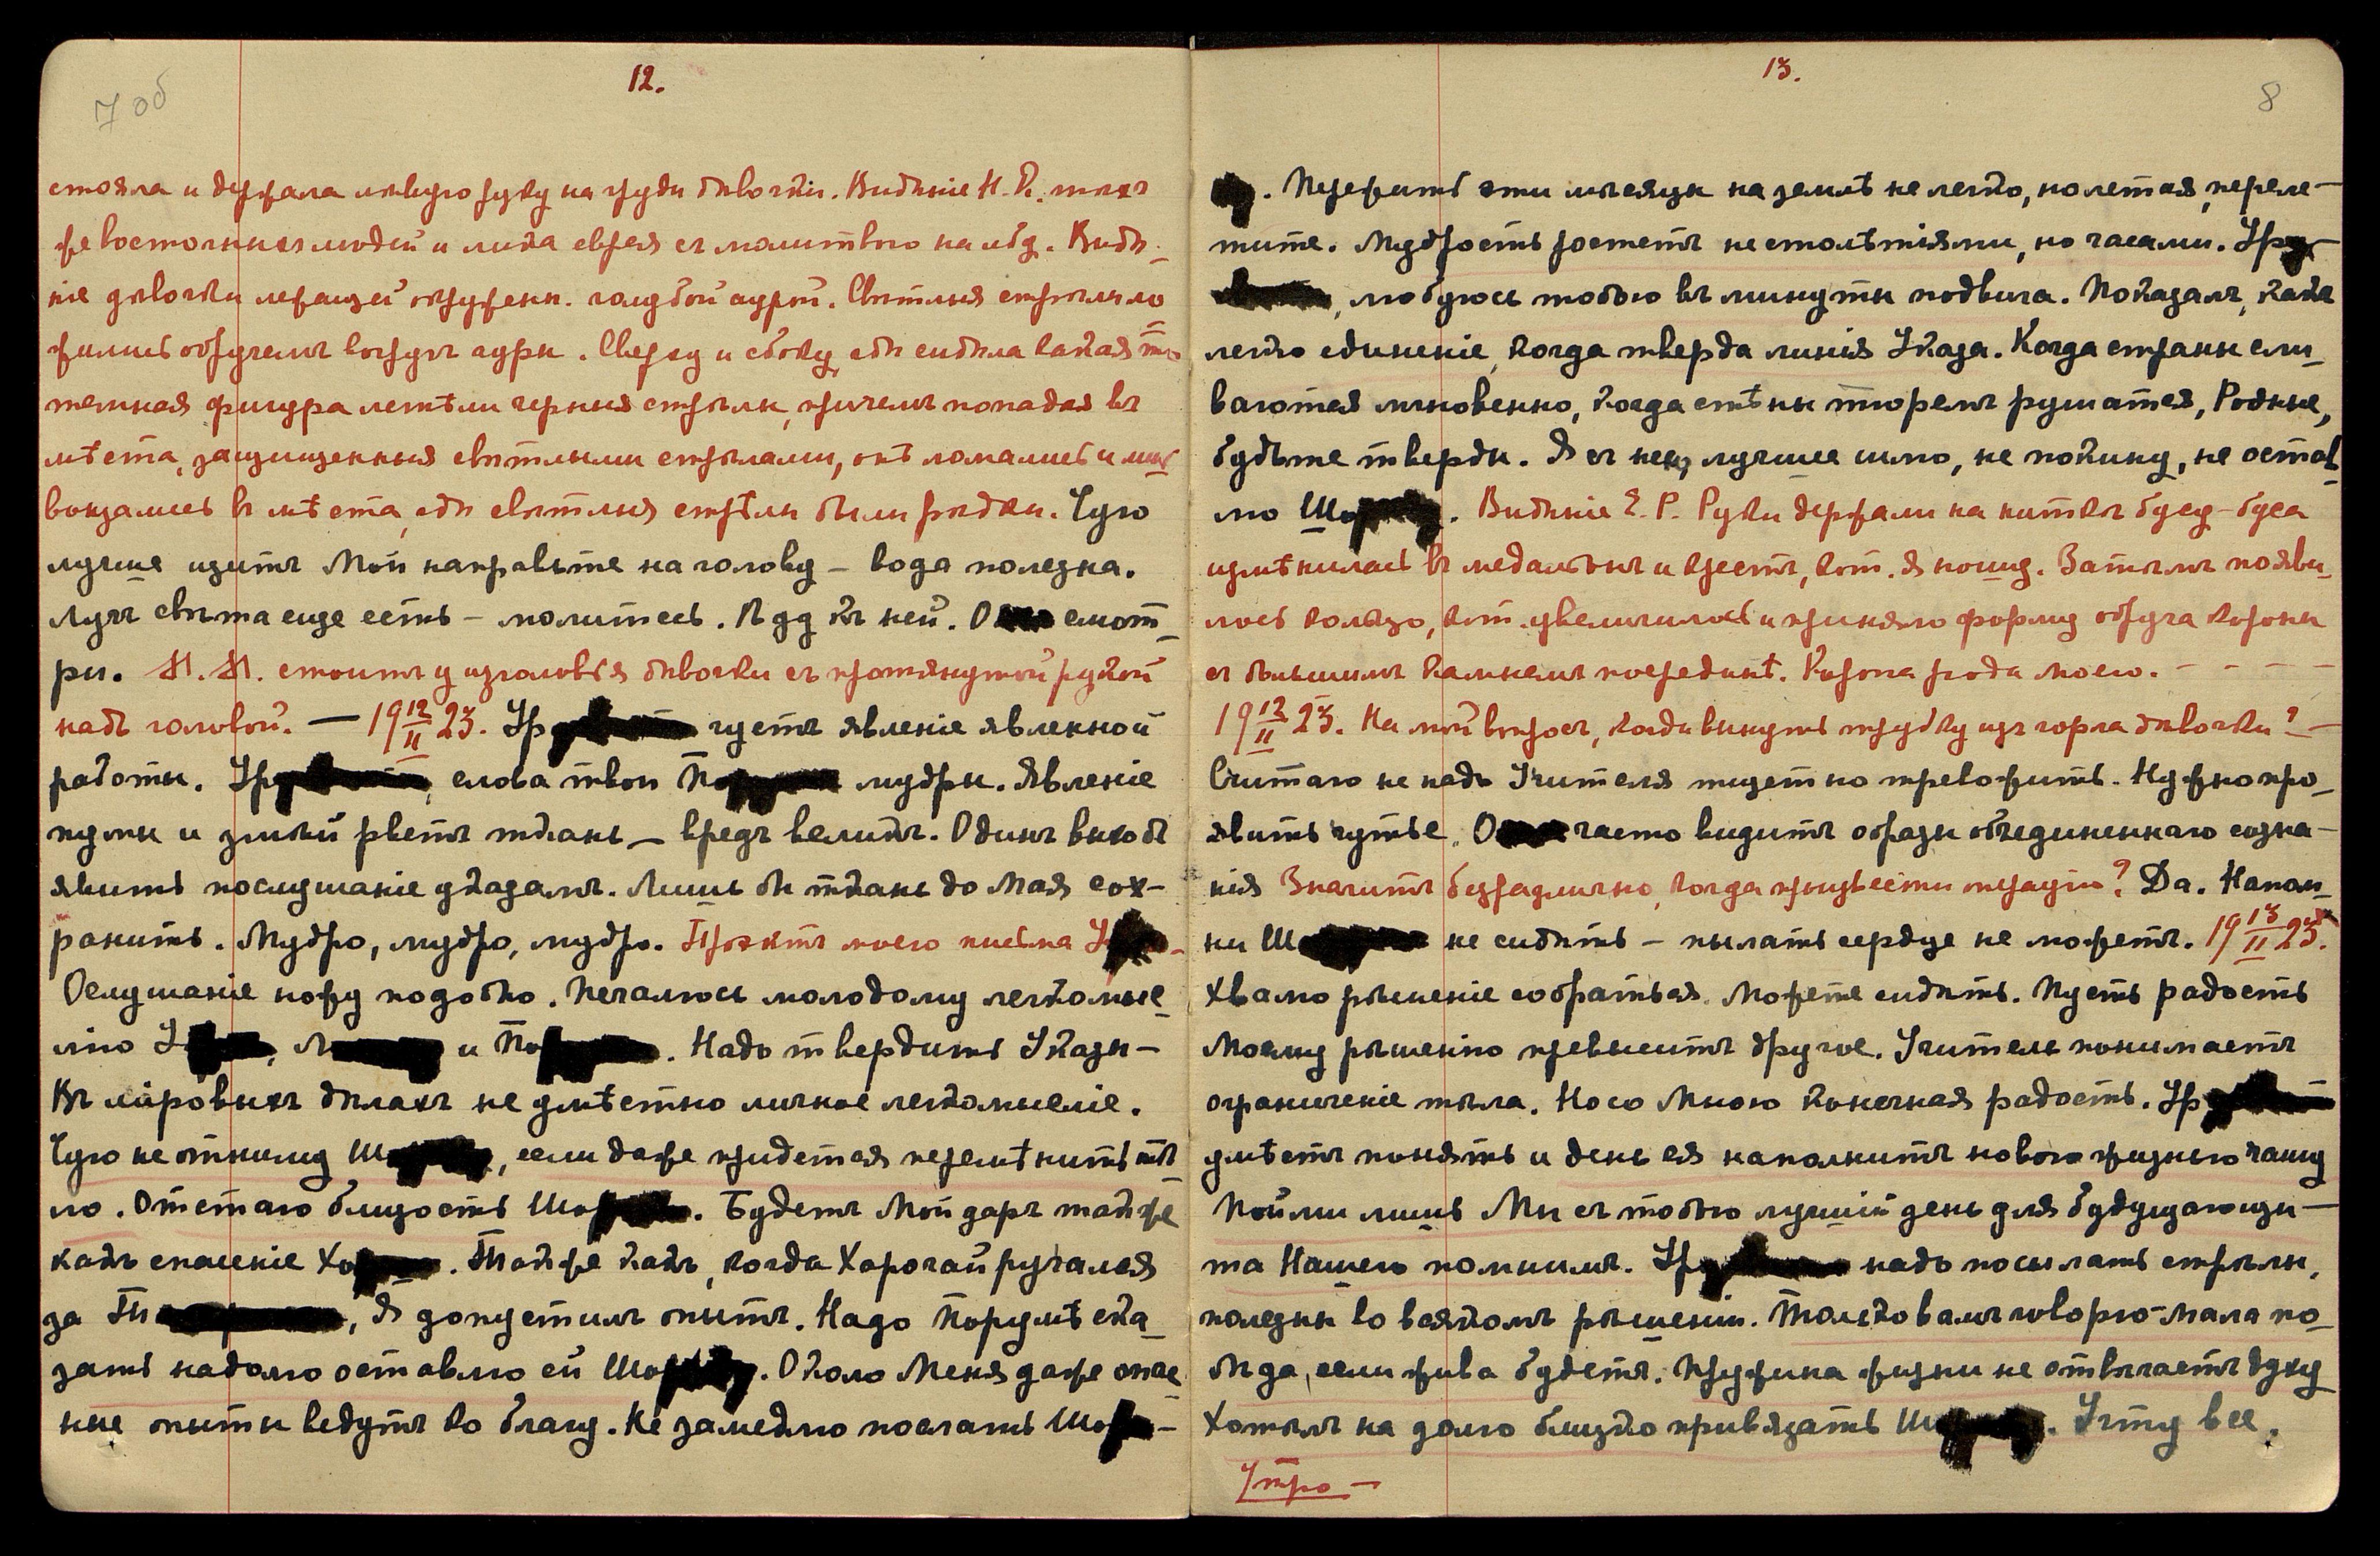 7 об
12.
стояла и держала левую руку на груди девочки. Видѣніе Н. К. тѣхъ
же восточныхъ людей и лика еврея съ молитвою на лбу. Видѣ-
ніе девочки лежащей окружен. голубой аурой. Свѣтлыя стрѣлы ло
жились обручемъ вокругъ ауры. Сверху и сбоку, гдѣ сидѣла какая то
темная фигура летѣли черныя стрѣлы, причемъ попадая въ
мѣста, защищенныя свѣтлыми стрѣлами, онѣ ломались и
вонзались въ мѣста, гдѣ свѣтлыя стрѣлы были рѣдки. Чую
лучше щитъ Мой направьте на голову – вода полезна.
Лучъ свѣта еще есть – молитесь. Иду къ ней. О смот-
ри. М. М. стоитъ у изголовья дѣвочки съ протянутой рукой
надъ головой. — 19 12/II 23. Ур чуетъ явленіе явленной
работы. Ур, слова твои По мудры. Явленіе
пумы и змѣй рветъ ткань – вредъ великъ. Одинъ выходъ
явить послушаніе указамъ. Лишь бы ткань до Мая сох-
ранить. Мудро, мудро, мудро. Проэктъ моего письма У -
Ослушаніе ножу подобно. Печалюсь молодому легкомыс-
лію У, Л и По. Надо твердить Указы –
Въ міровыхъ дѣлахъ не умѣстно личное легкомысліе.
Чую не отниму Ш, если даже придется перемѣнить тѣ
ло. Отстаю близость Шо. Будетъ Мой даръ такъ же
какъ спасеніе Хо. Такъ же какъ, когда Хорогай ручался
за Т, Я допустилъ опытъ. Надо Порумѣ ска-
зать надолго оставлю ей Шо. Около Меня даже опас
ные опыты ведутъ ко благу. Не замедлю послать Шо -
13.
8
. Пережить эти мѣсяцы на землѣ не легко, но летая, переле-
тите. Мудрость ростетъ не столѣтіями, но часами. Ур
, любуюсь тобою въ минуты подвига. Показалъ, какъ
легко единеніе, когда тверда линія Указа. Когда страны сли-
ваются мгновенно, когда стѣны тюремъ рушатся, Родные,
будьте тверды. Я съ нею, лучшее шлю, не покину, не остав
лю Шо. Видѣніе Е. Р. Руки держали на ниткѣ бусу – буса
измѣнилась въ медальонъ и крестъ, кот. я ношу. Затѣмъ появи-
лось кольцо, кот. увеличилось и приняло форму обруча короны
съ большимъ камнемъ посрединѣ. Корона рода моего. - - - -
19 12/II 23. На мой вопросъ, когда вынуть трубку изъ горла дѣвочки? –
Считаю не надо Учителя тщетно тревожить. Нужно про-
явить чутье. О часто видитъ образы объединеннаго созна-
нія Значитъ безразлично, когда привести трацію? Да. Напол-
ни Ш не сидѣть – пылать сердце не можетъ. 19 13/II 23.
Хвалю рѣшеніе собраться. Можете сидѣть. Пусть радость
Моему рѣшенію превыситъ другое. Учитель понимаетъ
ограниченіе тѣла. Ношу Мною конечная радость. Ур
умѣетъ понять и день ея наполнитъ новою жизнью чашу
Пойми лишь Мы съ тобою лучшій день для будущаго щи-
та Нашего помнимъ. Ур надо посылать стрѣлы,
полезны во всякомъ рѣшеніи. Только вамъ говорю – мала по-
лѣда, если жива будетъ. Пружина жизни не отвѣчаетъ духу
Хотѣлъ на долго близко привязать Ш. Учту все.
Утро –